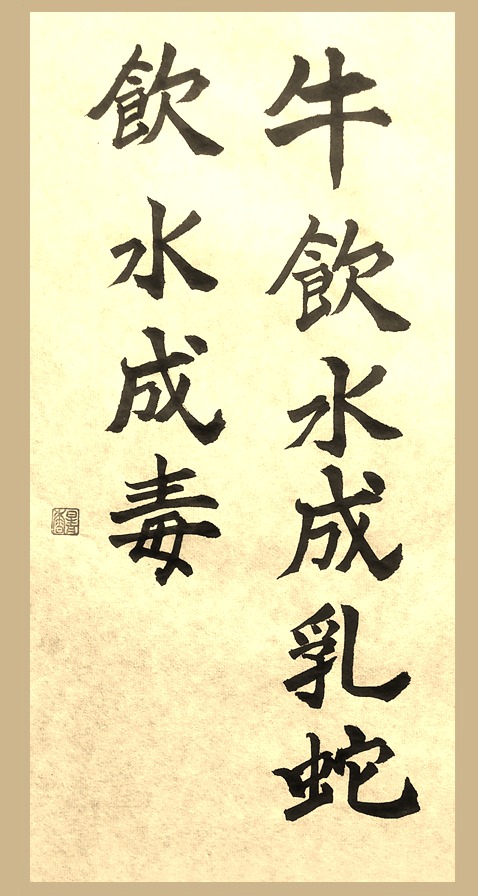 牛飲水成乳蛇
飲水成毒